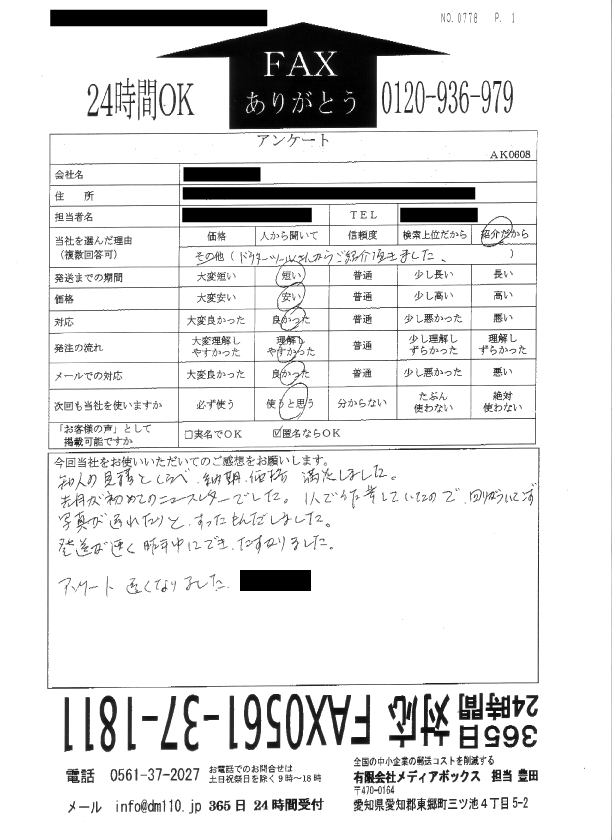 NO.0778 P. 1
FAX
ありがとう
24時間OK
0120-936-979
アンケート
AK0608
会社名
住 所
担当者名 TEL
当社を選んだ理由(複数回答可) 価格 人から聞いて 信頼度 検索上位だから 紹介だから
その他( ドクターツールさんからご紹介頂きました。 )
発送までの期間 大変短い 短い 普通 少し長い 長い
価格 大変安い 安い 普通 少し高い 高い
対応 大変良かった 良かった 普通 少し悪かった 悪い
発注の流れ 大変理解しやすかった 理解しやすかった 普通 少し理解しずらかった 理解しずらかった
メールでの対応 大変良かった 良かった 普通 少し悪かった 悪い
次回も当社を使いますか 必ず使う 使うと思う 分からない たぶん使わない 絶対使わない
「お客様の声」として掲載可能ですか □実名でOK ☑匿名ならOK
今回当社をお使いいただいてのご感想をお願いします。
知人の見積とくらべ、納期、価格 満足しました。
先月が初めてのニュースレターでした。1人で
写真が遅れたりと、すったもんだしました。
発送が速く 昨年中にでき、たすかりました。
アンケート 遅くなりました
365日
24時間 対応 FAX0561-37-1811
電話 0561-37-2027 お電話でのお問合せは
土日祝祭日を除く9時~18時
メール info@dm110.jp 365日 24時間受付
全国の中小企業の郵送コストを削減する
有限会社メディアボックス 担当 豊田
〒470-0164
愛知県愛知郡東郷町三ツ池4丁目5-2